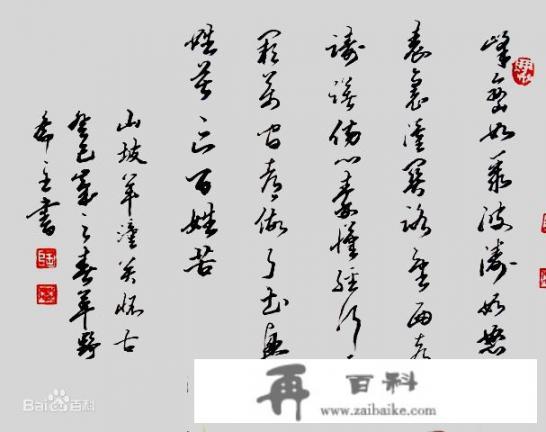 峰峦如聚波涛如怒
表里潼关路望西都
踌躇伤心秦汉经行
阙万间都做了土兴
姓苦亡百姓苦
山坡羊潼关怀古
癸巳岁之春羊野
書
Bai百科
再百科
www.zaibaike.com